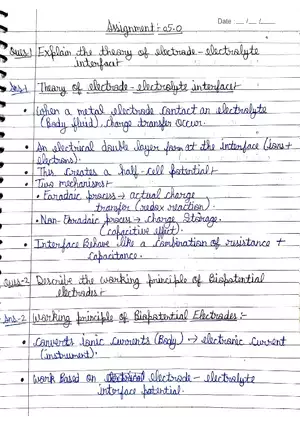 Assignment: 05.0
Date __/__/__
Ques:1 Explain the theory of electrode-electrolyte
interface:
Ans:1 Theory of electrode-electrolyte interface:
• When a metal electrode contact an electrolyte
(Body fluid), charge transfer occur.
• An electrical double layer form at the interface (ions +
electrons).
• This creates a half-cell potential.
• Two mechanism:
• Faradaic process → actual charge
transfer (redox reaction).
• Non-Faradaic process → charge storage.
(capacitive effect).
• Interface Behave like a combination of resistance +
capacitance.
Ques-2 Describe the working principle of Biopotential
electrodes:
Ans-2 Working principle of Biopotential Electrodes:-
• Converts Ionic currents (Body) → electronic current
(instrument).
• Work Based on electrode-electrolyte
interface potential.